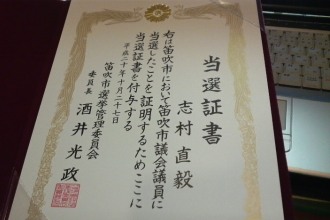 当選証書
志村直毅
右は笛吹市において笛吹市議会議員に
当選したことを証明するためここに
当選証書を付与する
平成二十年十月二十七日
笛吹市選挙管理委員会
委員長 酒井光政